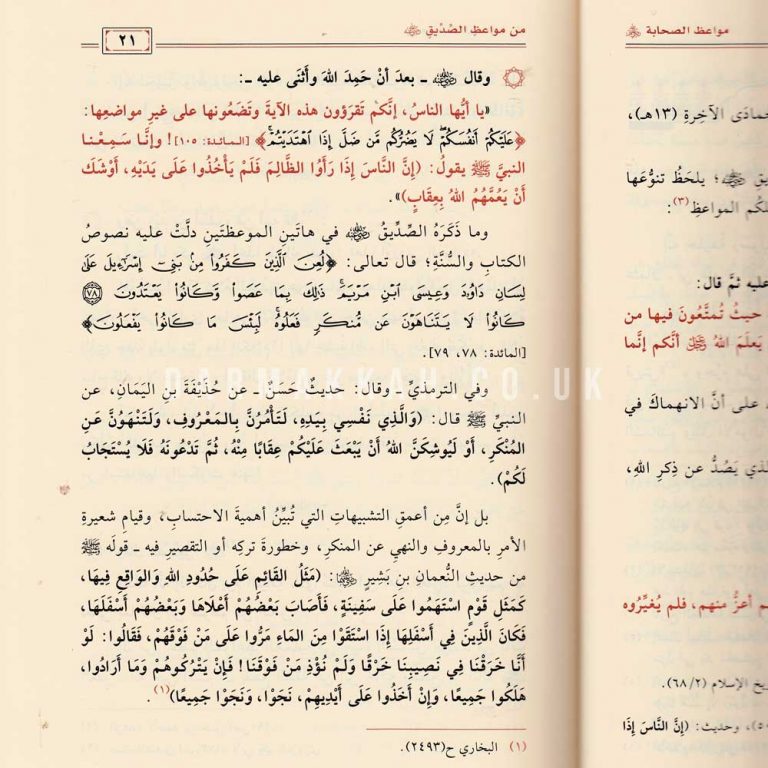 مواعظ الصحابة ﵃
جمادَى الآخِرةِ (١٣هـ)،
؛ يلحَظُ تنوُّعَها
المواعظِ(٣):
عليه ثمَّ قال:
حيثُ تُمتَّعُونَ فيها من
يَعلَمَ اللهُ ﷿ أنَّكم إنَّما
على أنَّ الانهماكَ في
يَصُدُّ عن ذِكرِ اللهِ،
أعزُّ منهم، فلم يُغيِّروه
الإسلام (٦٨/٢).
وحديث: (إنَّ النَّاسَ إذَا
من مواعظِ الصِّدِّيقِ ﵁
٢١
وقال ﵁ ـ بعدَ أنْ حَمِدَ اللهَ وأَثنَى عليه ـ:
«يا أيُّها الناسُ، إنَّكم تَقرَؤونَ هذه الآيةَ وتَضَعُونها على غيرِ مواضعِها:
﴿عَلَيْكُمْ أَنفُسَكُمْ لَا يَضُرُّكُم مَّن ضَلَّ إِذَا اهْتَدَيْتُمْ﴾ [المائدة: ١٠٥]! وإنَّا سَمِعْنا
النبيَّ ﷺ يقولُ: (إنَّ النَّاسَ إذَا رَأَوُا الظَّالِمَ فَلَمْ يَأْخُذُوا عَلَى يَدَيْهِ، أَوْشَكَ
أَنْ يَعُمَّهُمُ اللهُ بِعِقَابٍ)».
وما ذَكَرَهُ الصِّدِّيقُ ﵁ في هاتَينِ الموعظتَينِ دلَّتْ عليه نصوصُ
الكتابِ والسُّنَّةِ؛ قال تعالى: ﴿لُعِنَ الَّذِينَ كَفَرُوا مِنْ بَنِي إِسْرَائِيلَ عَلَى
لِسَانِ دَاوُودَ وَعِيسَى ابْنِ مَرْيَمَ ذَلِكَ بِمَا عَصَوا وَّكَانُوا يَعْتَدُونَ ٧٨
كَانُوا لَا يَتَنَاهَوْنَ عَن مُّنكَرٍ فَعَلُوهُ لَبِئْسَ مَا كَانُوا يَفْعَلُونَ﴾
[المائدة: ٧٨، ٧٩].
وفي الترمذيِّ ـ وقال: حديثٌ حَسَنٌ ـ عن حُذَيْفَةَ بنِ اليَمَانِ، عن
النبيِّ ﷺ قال: (وَالَّذِي نَفْسِي بِيَدِهِ، لَتَأْمُرُنَّ بِالمَعْرُوفِ، وَلَتَنْهَوُنَّ عَنِ
المُنْكَرِ، أَوْ لَيُوشِكَنَّ اللهُ أَنْ يَبْعَثَ عَلَيْكُمْ عِقَابًا مِنْهُ، ثُمَّ تَدْعُونَهُ فَلَا يُسْتَجَابُ
لَكُمْ).
بل إنَّ مِن أعمقِ التشبيهاتِ التي تُبيِّنُ أهميةَ الاحتسابِ، وقيامِ شعيرةِ
الأمرِ بالمعروفِ والنهيِ عن المنكرِ، وخطورةَ تركِه أو التقصيرِ فيه ـ قولَه ﷺ
من حديثِ النُّعمانِ بنِ بَشِيرٍ ﵄: (مَثَلُ القَائِمِ عَلَى حُدُودِ اللهِ وَالوَاقِعِ فِيهَا،
كَمَثَلِ قَوْمٍ اسْتَهَمُوا عَلَى سَفِينَةٍ، فَأَصَابَ بَعْضُهُمْ أَعْلَاهَا وَبَعْضُهُمْ أَسْفَلَهَا،
فَكَانَ الَّذِينَ فِي أَسْفَلِهَا إِذَا اسْتَقَوْا مِنَ المَاءِ مَرُّوا عَلَى مَنْ فَوْقَهُمْ، فَقَالُوا: لَوْ
أَنَّا خَرَقْنَا فِي نَصِيبِنَا خَرْقًا وَلَمْ نُؤْذِ مَنْ فَوْقَنَا! فَإِنْ يَتْرُكُوهُمْ وَمَا أَرَادُوا،
هَلَكُوا جَمِيعًا، وَإِنْ أَخَذُوا عَلَى أَيْدِيهِمْ، نَجَوْا، وَنَجَوْا جَمِيعًا)(١).
(١) البخاري ح(٢٤٩٣).
DARMAKKAH.CO.UK